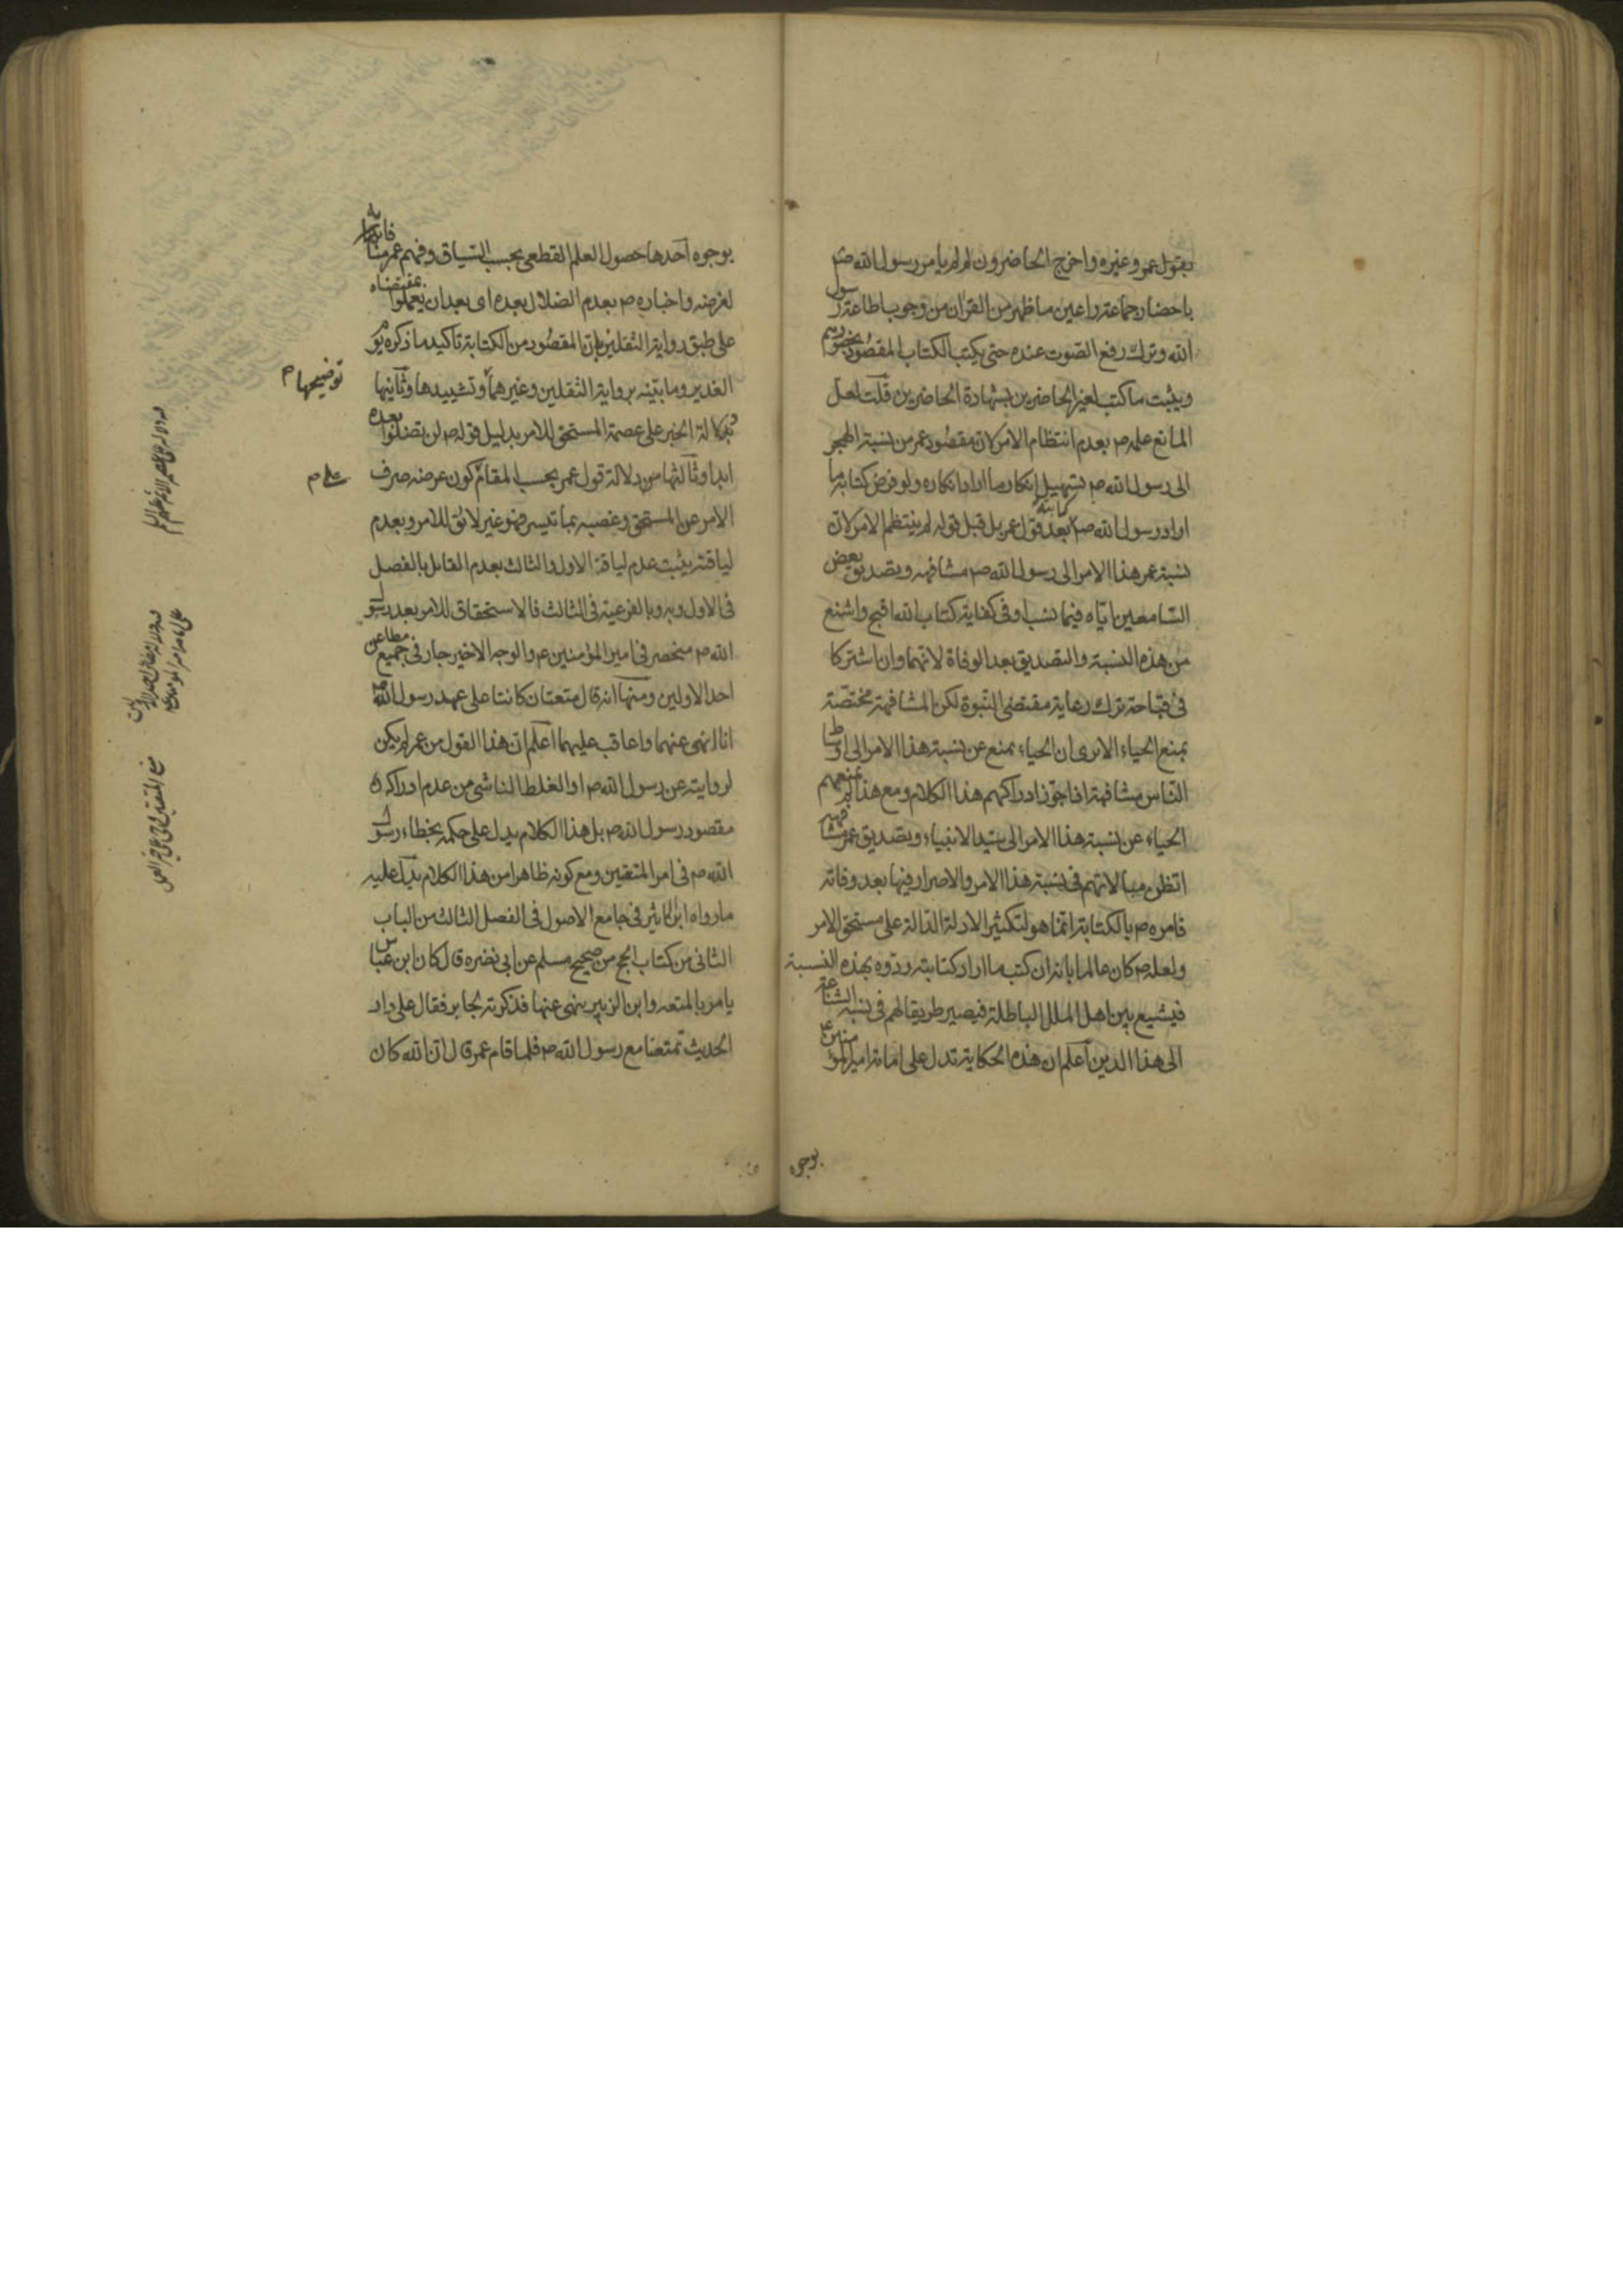 بقول عمر وغيره واخرج الحاضرون لم لم يامر رسول الله ص
باحضار جماعة واعين ما ظهر من القران من وجوب اطاعة رسول
الله وترك رفع الصوت عنده حتى يكتب الكتاب المقصود بحضورهم
ويثبت ما كتب لغير الحاضرين بشهادة الحاضرين قلت لعل
المانع علمه ص بعدم انتظام الامر لان مقصود عمر من نسبة الهجر
الى رسول الله ص تسهيل انكار ما اراد انكاره ولو فرض كتابة ما
اراد رسول الله ص كتابته بعد قول عمر بل قبل قوله لم ينتظم الامر لان
نسبة عمر هذا الامر الى رسول الله ص مشافهة وتصديق بعض
السامعين اياه فيما نسب او في كفاية كتاب الله اقبح واشنع
من هذه النسبة والتصديق بعد الوفاة لانهما وان اشتركا
في قباحة ترك رعاية مقتضى النبوة لكن المشافهة مختصة
بمنع الحياء الا ترى ان الحياء يمنع عن نسبة هذا الامر الى اوساط
الناس مشافهة اذا جوز ادراكهم هذا الكلام ومع هذا لم يمنعهم
الحياء عن نسبة هذا الامر الى سيد الانبياء وتصديق عمر مشافهة
اتظن مبالاتهم في نسبة هذا الامر والاصرار فيها بعد وفاته
فامره ص بالكتابة انما هو لتكثير الادلة الدالة على مستحق الامر
ولعله ص كان عالما بانه ان كتب ما اراد كتابته ردوه بهذه النسبة
فيشيع بين اهل الملل الباطلة فيصير طريقا لهم في نسبة الشناعة
الى هذا الدين اعلم ان هذه الحكاية تدل على امامة امير المؤمنين ع
بوجوه
بوجوه احدها حصول العلم القطعي بحسب السياق وفهم عمر مناف
لغرضه واخباره ص بعدم الضلال بعده اى بعد ان يعملوا بمقتضاه
على طبق رواية الثقلين بان المقصود من الكتابة تاكيد ما ذكره يوم
الغدير وما بينه برواية الثقلين وغيرهما وتشييدها وثانيها
توضيحها م
دلالة الخبر على عصمة المستحق للامر بدليل قوله ص لن تضلوا بعده
ابدا وثالثها من دلالة قول عمر بحسب المقام كون غرضه صرف
على م
الامر عن المستحق وغصبه بما تيسر فهو غير لائق للامر وبعدم
لياقته يثبت عدم لياقة الاول والثالث بعدم القائل بالفصل
فى الاول وبه وبالفرعية فى الثالث فالاستحقاق للامر بعد رسول
الله ص منحصر فى امير المؤمنين ع والوجه الاخير جار فى جميع مطاعن
احد الاولين ومنها انه قال متعتان كانتا على عهد رسول الله ص
انا انهى عنهما واعاقب عليهما اعلم ان هذا القول من عمر لم يكن
لروايته عن رسول الله ص او الغلط الناشى من عدم ادراك
مقصود رسول الله ص بل هذا الكلام يدل على حكمه بخطاء رسول
الله ص فى امر المتعتين ومع كونه ظاهرا من هذا الكلام يدل عليه
ما رواه ابن الاثير فى جامع الاصول فى الفصل الثالث من الباب
الثانى من كتاب الحج من صحيح مسلم عن ابى نضره قال كان ابن عباس
يامر بالمتعه وابن الزبير ينهى عنها فذكرته لجابر فقال على دار
الحديث تمتعنا مع رسول الله ص فلما قام عمر قال ان الله كان